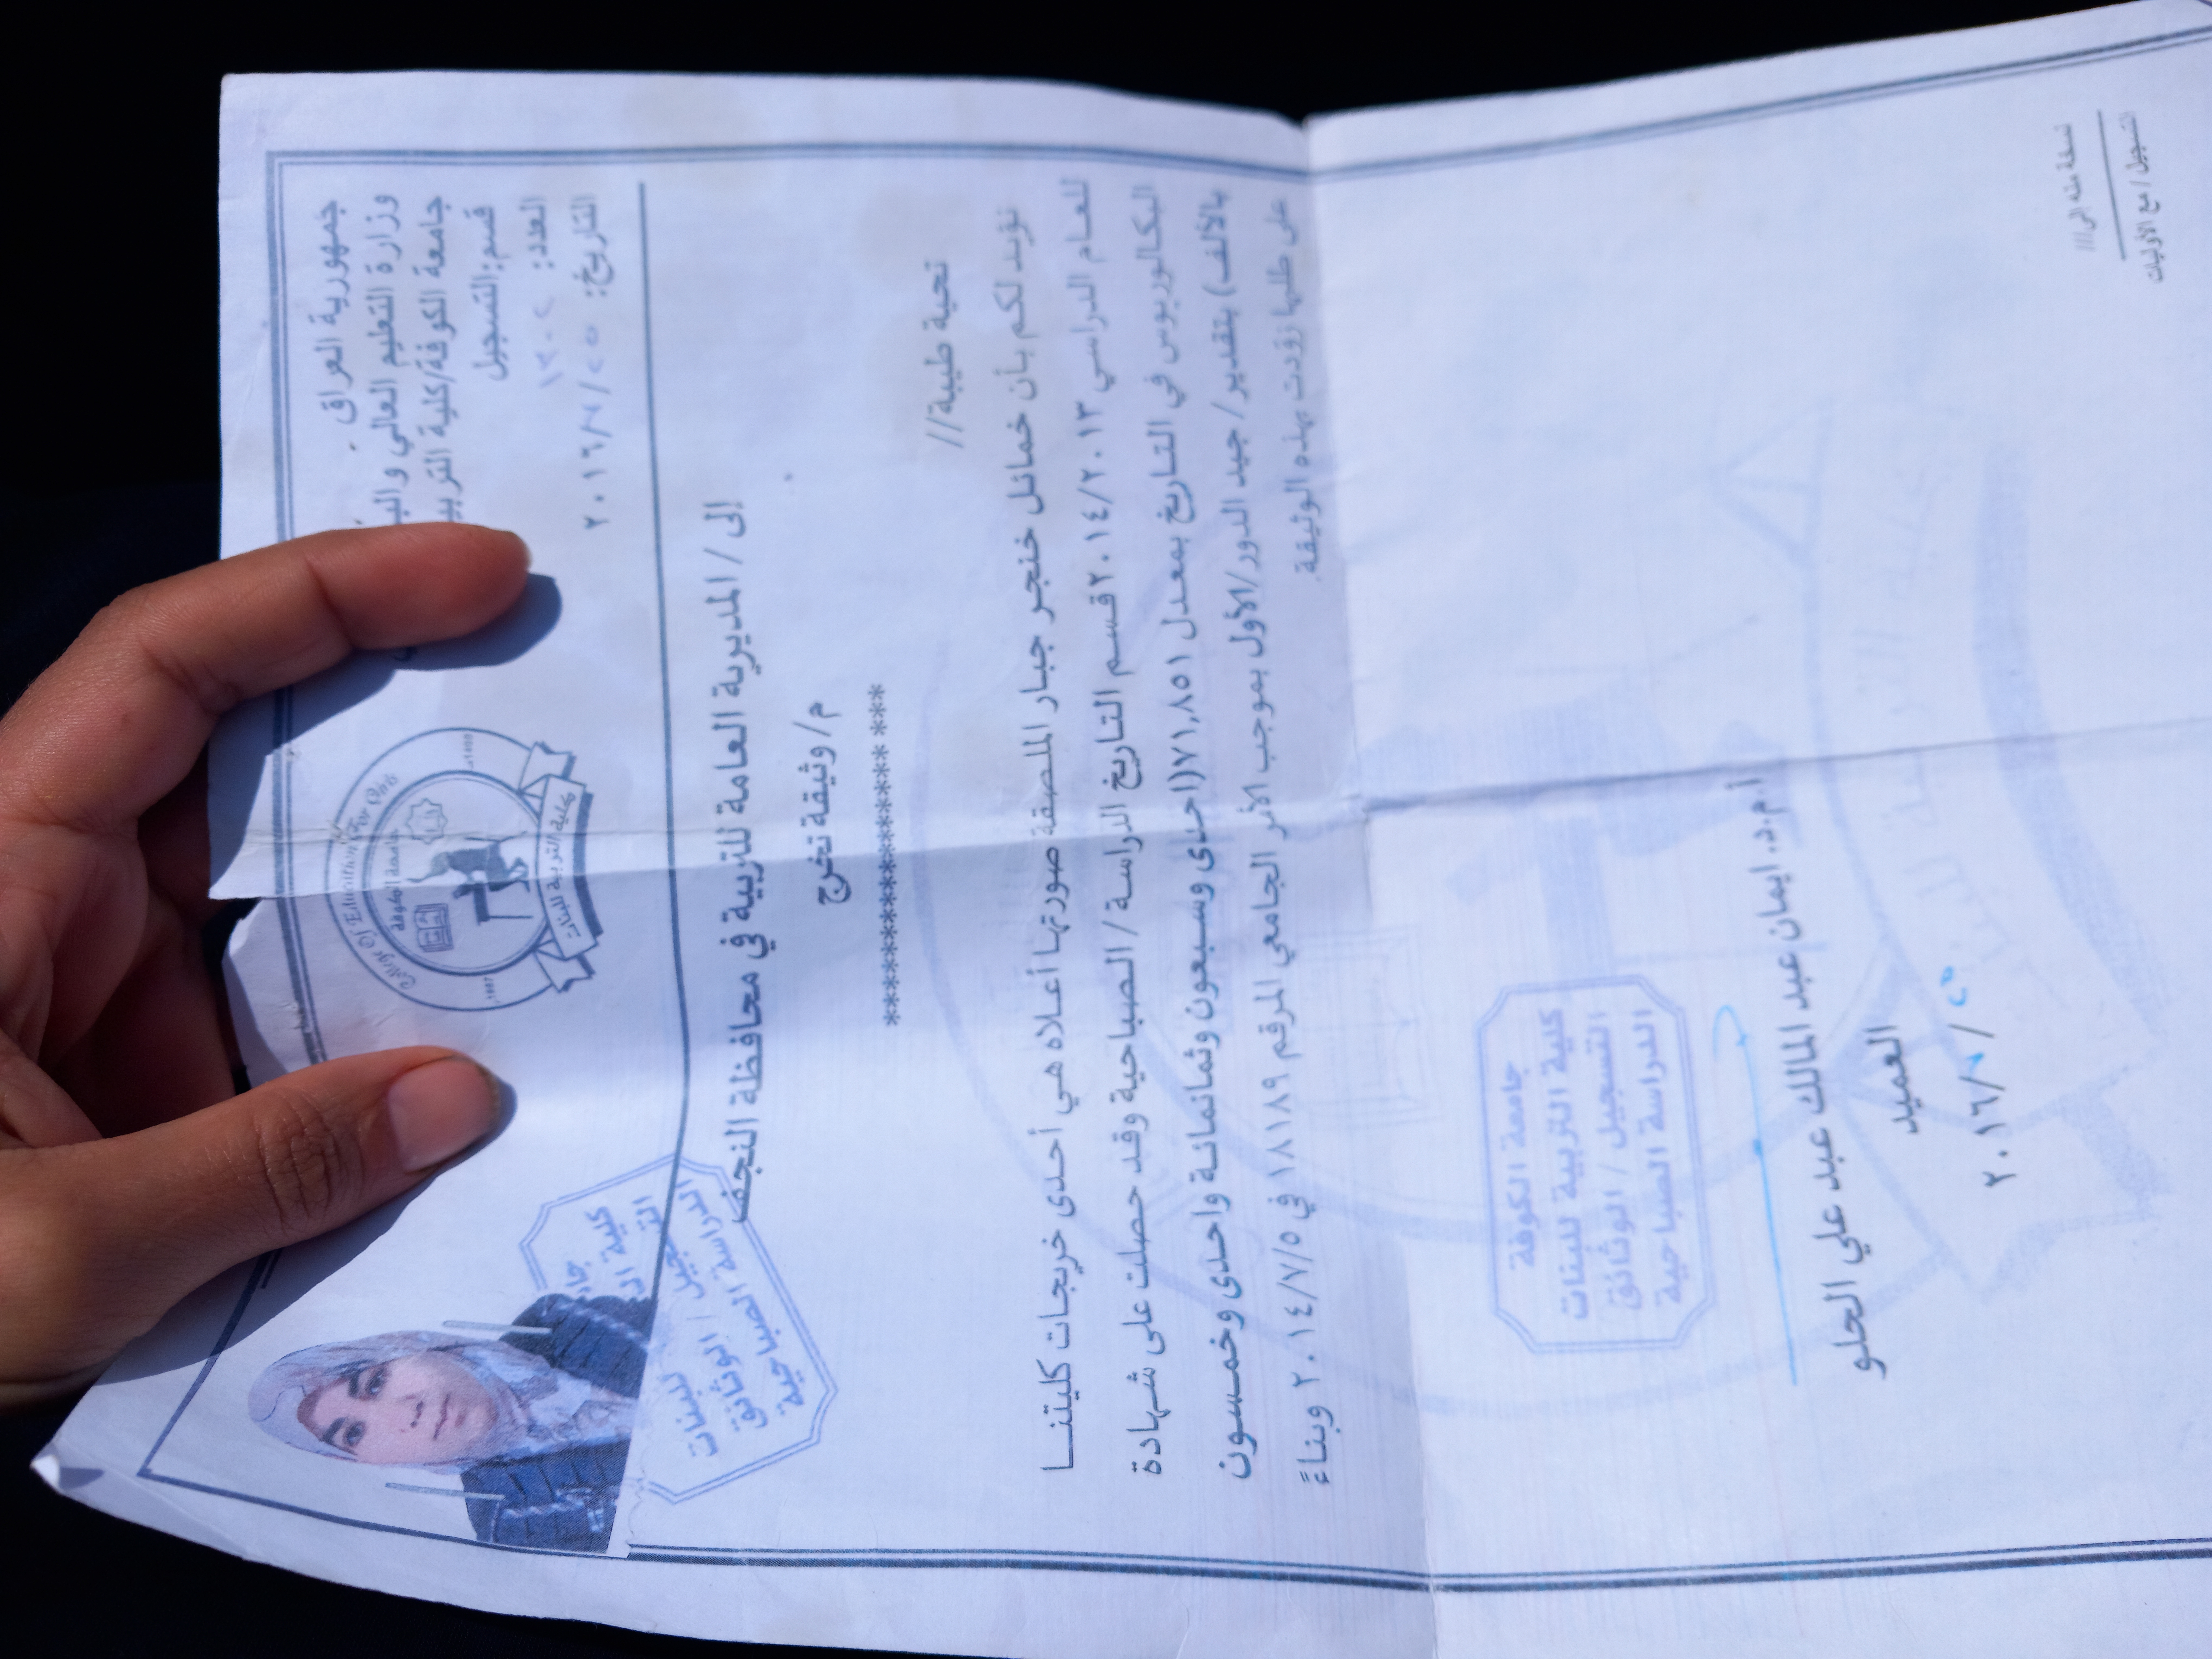 جمهورية العراق
وزارة التعليم العالي
جامعة الكوفة/كلية
قسم: التسجيل
العدد:
التاريخ: / / ٢٠١٦
College Of Education For Girls
جامعة الكوفة
كلية التربية للبنات
إلى / المديرية العامة للتربية في محافظة النجف
م/ وثيقة تخرج
تحية طيبة//
نؤيد لكم بأن خمائل خنجر جبار الملصقة صورتها أعلاه هي أحدى خريجات كليتنا
للعام الدراسي ٢٠١٤/٢٠١٣ قسم التاريخ الدراسة / الصباحية وقد حصلت على شهادة
البكالوريوس في التاريخ بمعدل ٧١,٨٥١(احدى وسبعون وثمانمائة واحدى وخمسون
بالألف) بتقدير/ جيد الدور/الأول بموجب الأمر الجامعي المرقم ١٨١٨٩ في ٢٠١٤/٧/٥ وبناءً
على طلبها زودت بهذه الوثيقة.
الدراسة الصباحية
جامعة الكوفة
كلية التربية للبنات
التسجيل / الوثائق
الدراسة الصباحية
أ.م.د. ايمان عبد المالك عبد علي الحلو
العميد
٢٠١٦/ /
نسخة منه الى///
التسجيل/ مع الأوليات